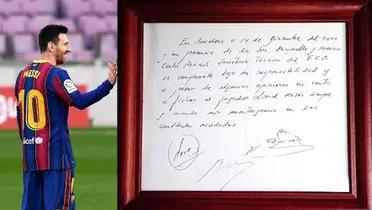 MESSI
10
En Barcelona a 14 de Diciembre del 2000
y en presencia de los Srs. Minguella y Horacio
Carles Rexach Secretario Técnico del F.C.B
se compromete bajo su responsabilidad y
a pesar de algunas opiniones en contra
a fichar al jugador Lionel Messi siempre
y cuando nos mantengamos en las
cantidades acordadas